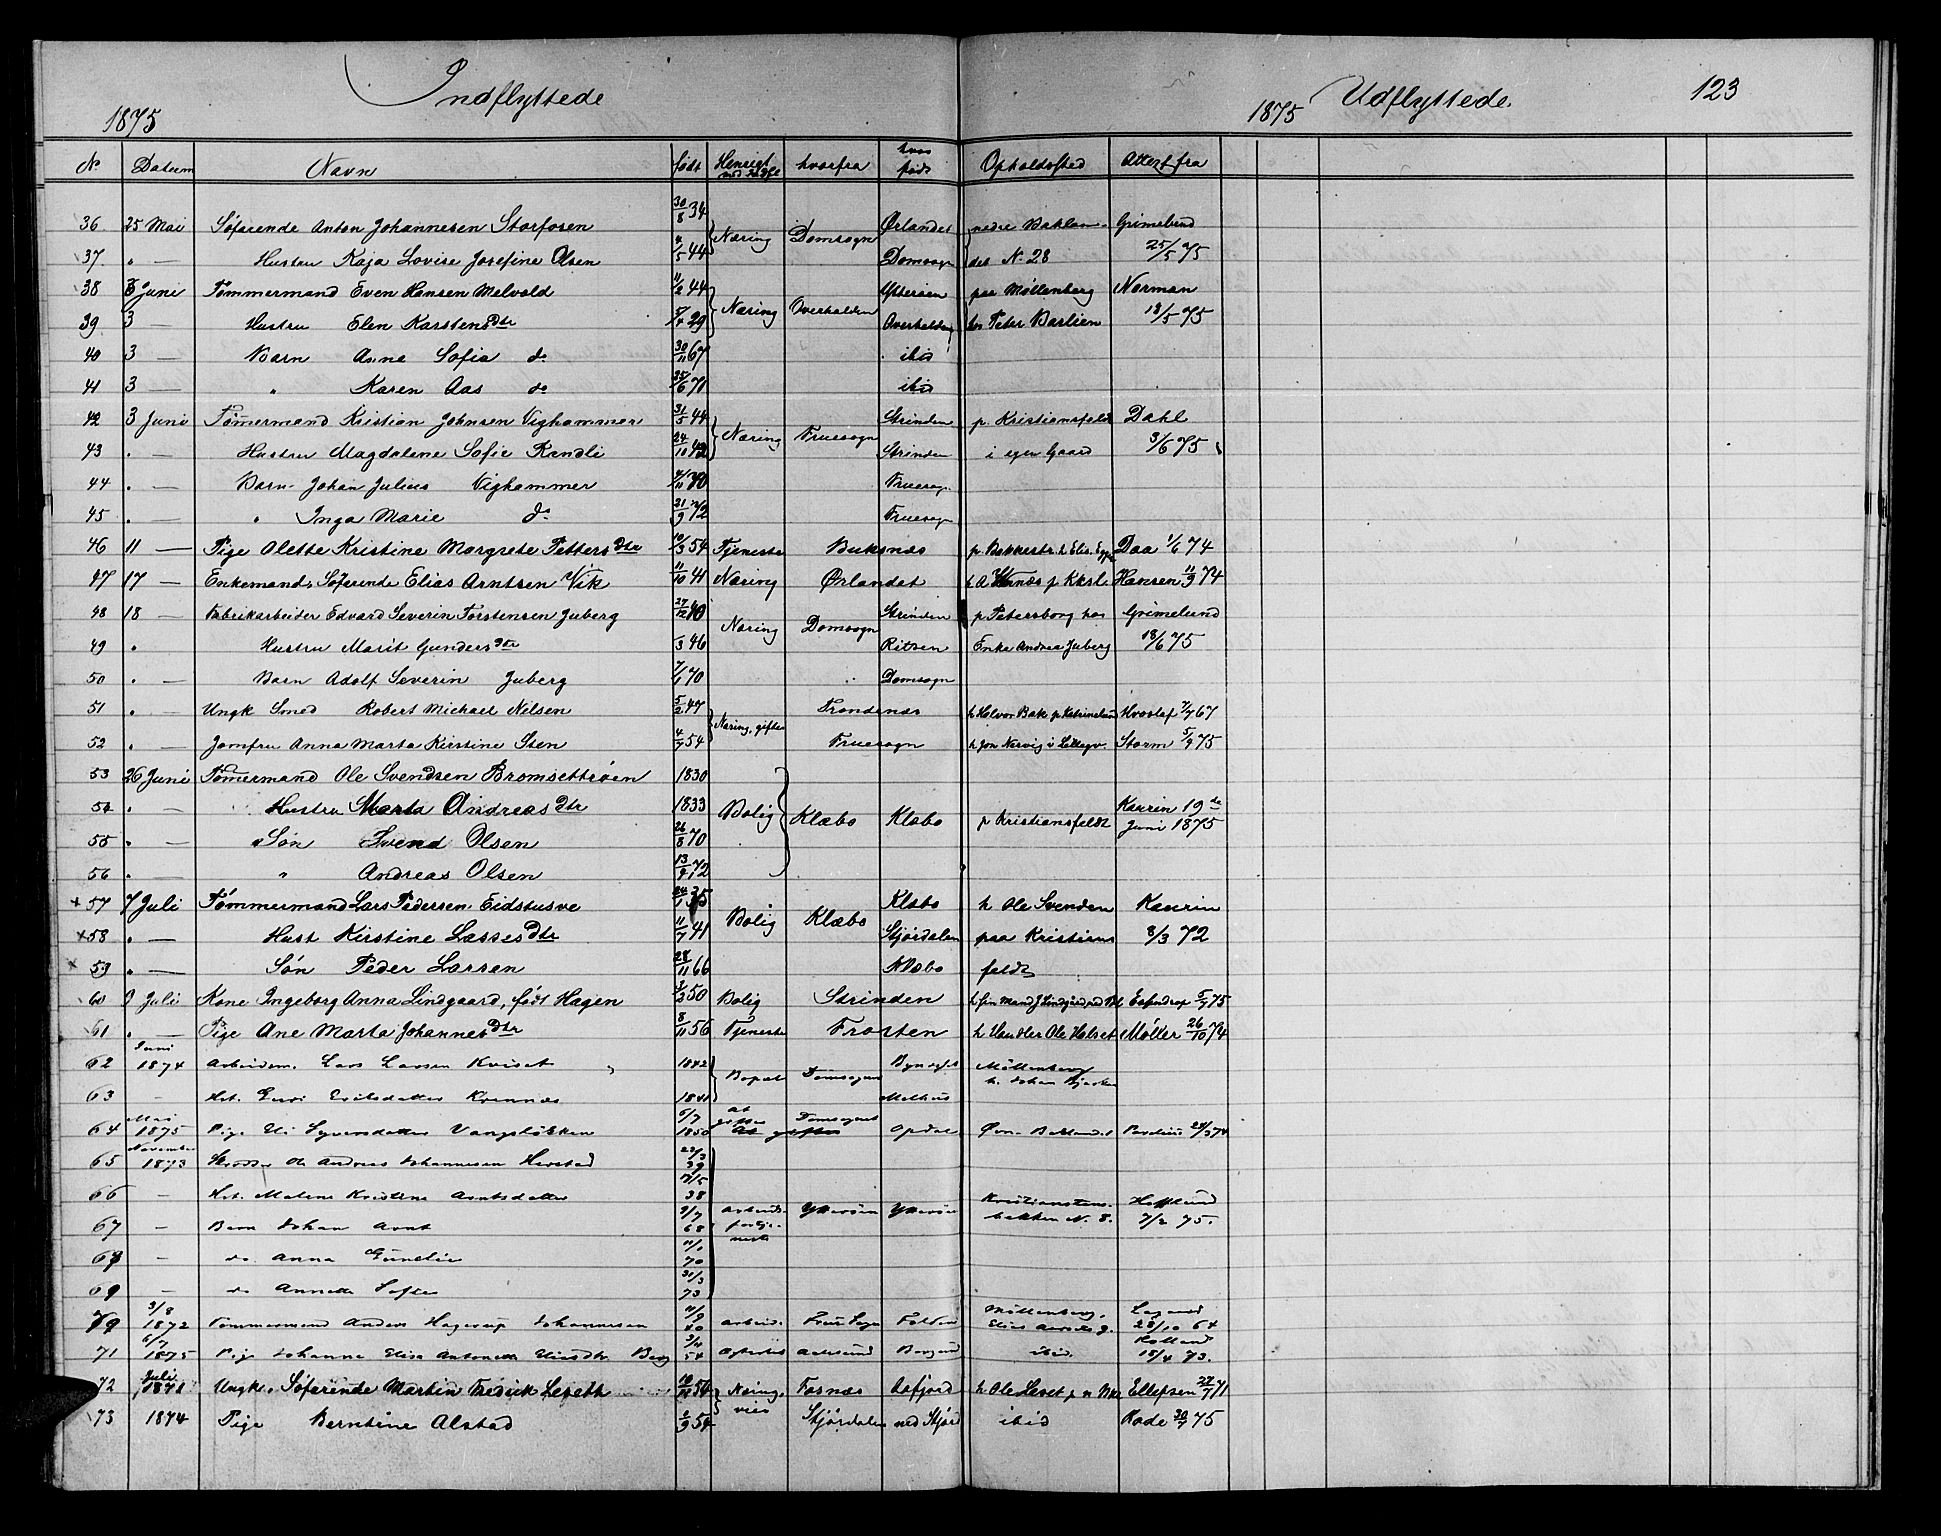 Indflyttede
1875
Udflyttede. 123
1875
No Datum Navn født Hensigt med Indfl hvorfra hvor født Opholdssted Attest fra
36 25 Mai Søfarende Anton Johannesen Storfosen 30/8 34 Næring Domsogn Ørlandet nedre Baklan- Grimelund
37. " — Hustru Kaja Lovise Josefine Olsen 4/5 44 Domsogn det N. 28 25/5 75
38 3 Juni Tømmermand Even Hansen Melvold 11/2 44 Næring Overhalden Ytterøen paa Møllenberg Norman
39 3 — Hustru Elen Karstensdtr 29 Overhalden hos Peter Barlien 18/5 75
40 3 — Barn Anna Sofia do 30/11 67 ibid
41 3 — " Karen Aas do 25/6 71 ibid
42 3 Juni Tømermand Kristian Johnsen Vighammer 31/5 44 Næring Fruesogn Strinden p. Kristiansfeldt Dahl
43 " — Hustru Magdalene Sofie Randli 24/10 42 Strinden i egen Gaard 3/6 75
44 " — Barn Johan Julius Vighammer 4/11 70 Fruesogn
45 " — " Inga Marie do 21/9 72 Fruesogn
46 11 — Pige Olette Kristine Margrete Pettersdtr 10/3 54 Tjeneste Buksnæs p. Bakkestr. h Elis. Daa 1/6 74
47 17 — Enkemand, Søfarende Elias Arntsen Vik 11/10 41 Næring Ørlandet Hansen 11/9 74
48 18 — Fabrikarbeider Edvard Severin Torstensen Juberg 27/12 40 Næring Domsogn Strinden p Petersborg hos Grimelund
49 " Hustru Marit Gundersdtr /3 46 Rissen Enke Andrea Juberg 18/6 75
50 " — Barn Adolf Severin Juberg 7/1 70 Domsogn
51 " — Ungk Smed Robert Michael Nilsen 5/2 47 Næring, gifte Trondenæs h Halvor Bak p Katrinelund Hvoslef 7/7 67
52 " — Jomfru Anna Marta Kirstine Sten 4/7 54 Fruesogn h Jon Nervig i Storm 5/7 75
53 26 Juni Tømermand Ole Svendsen Bromsettrøen 1830
54 " — Hustru Marta Andreasdtr 1833 Bolig Klæbo Klæbo p Kristiansfeldt Kaurin 19de Juni 1875
55 " — Søn Svend Olsen 26/8 70
56 " — " Andreas Olsen 13/9 72
+ 57 7 Juli Tømmermand Lars Pedersen Eidstusve 24/1 35 Bolig Klæbo Klæbo h Ole Svendsen Kaurin
+ 58 " — Hust Kirstine Lassesdtr 11/7 41 Stjørdalen paa Kristians 8/3 72
+ 59 " — Søn Peder Larsen 28/11 66 Klæbo feldt
60 9 Juli Kone Ingeborg Anna Lindgaard, født Hagen 3/2 50 Bolig Strinden h sin mand J Lindgård Esendrop 5/7 75
61 " — Pige Ane Marta Johannesdtr 8/11 56 Tjeneste Frosten h Handler Ole Holset Møller 26/10 74
62 Juni 1874 Arbeidsm. Lars Larsen Kviset 1842 Bopæl Domsogn Møllenberg
63 — Hst. Guri Eriksdatter Kvennæs 1841 Melhus h. Johan
64 Mai 1875 Pige Sivertsdatter Vangsløkken 6/7 1850 At giftes Domsognet Opdal Øvre Baklandet
65 November 1873 Skrædder Ole Andreas Johannesen 23/3 39
66 — Hst. Malena Kristina Arntsdatter 17/5 38 Kristiansten- Hofflund
67 — Barn Johan Arnt 9/7 68 Arbeidsfortjeneste Ytterøen Ytterøen bakken N. 8. 7/2 75.
68 — do. Anna 70
69 — do Annette Sofie 31/3 73
70 3/8 1872 Tømmermand Anders Hagerup Johannesen 11/9 40 Arbeid. Frue Sogn Folden Møllenberg, 28/10 64
71 6/7 1875 Pige Johanna Elisa Antonette Berg 54 Aalesund Borgund ibid. Rolland 15/4 73.
72 Juli 1871 Ungk. Søfarende Martin Fredrik Leseth 54 Nærings- Fosnæs Aafjord h Ole Leset Ellefsen 22/7 71
73 1874 Pige Berntine Alstad 6/9 54 vies Stjørdalen ned Stjørd ibid Kode 30/7 75